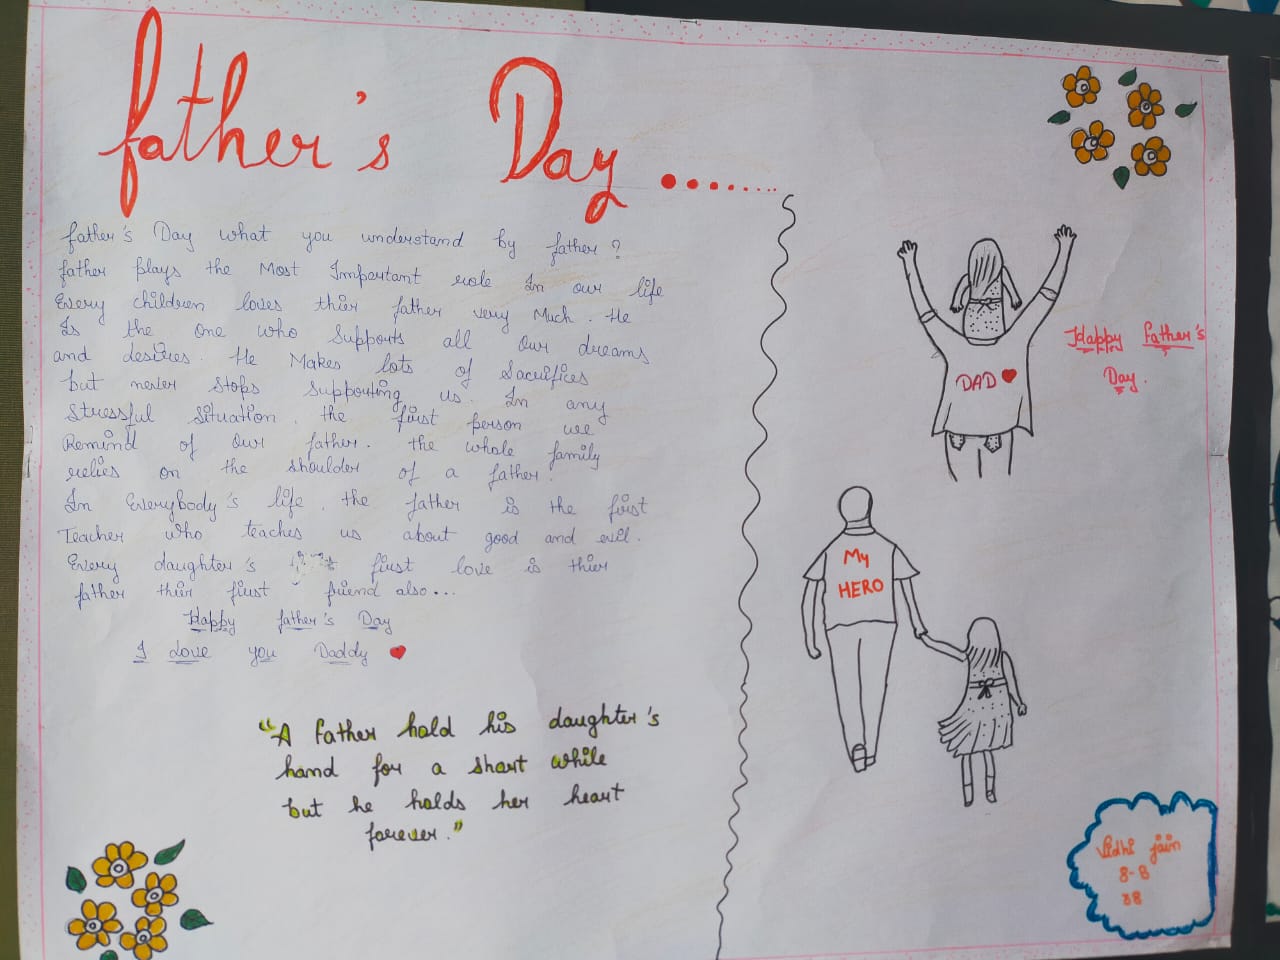 father's Day.......
father's Day what you understand by father?
father plays the Most Important role In our life
Every children loves thier father very Much. He
Is the one who Supports all our dreams
and desires. He Makes lots of Sacrifices
but never Stops Supporting us. In any
Stressful Situation, the first person we
Remind of our father. the whole family
relies on the shoulder of a father.
In Everybody's life, the father is the first
Teacher who teaches us about good and evil.
Every daughter's first love is thier
father thier first friend also...
Happy father's Day
I Love you Daddy
"A Father hold his daughter's
hand for a short while
but he holds her heart
forever."
DAD
Happy Father's
Day.
My
HERO
Vidhi jain
8-B
38